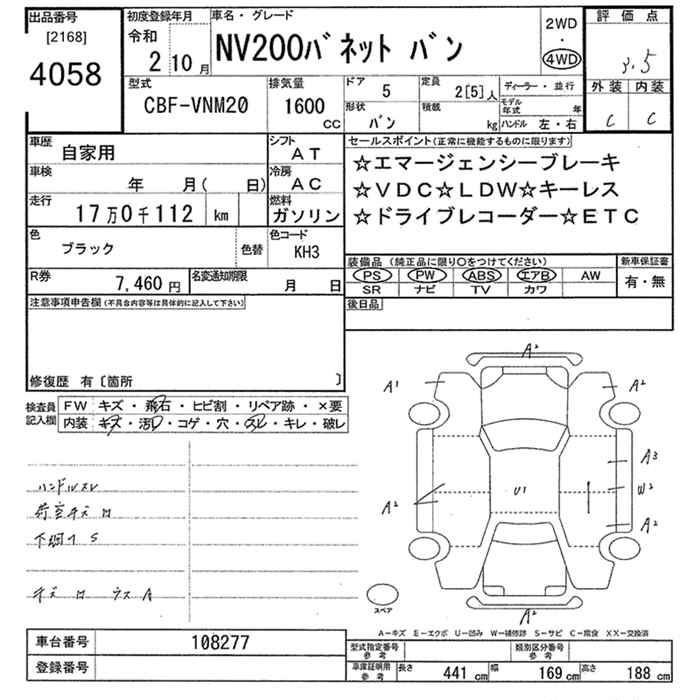 出品番号
[2168]
4058
初度登録年月
令和
2 10 月
車名・グレード
NV200バネット バン
2WD
・
4WD
評価点
3.5
外装 内装
C C
型式
CBF-VNM20
排気量
1600
CC
ドア
5
定員
2[5]人
ディーラー・並行
形状
バン
積載
kg
モデル年式 年
ハンドル 左・右
車歴
自家用
シフト
AT
車検
年 月( 日)
冷房
AC
走行
17万0千112 km
燃料
ガソリン
色
ブラック
色替
色コード
KH3
R券
7,460 円
名変通知期限
月 日
セールスポイント(正常に機能するものに限ります)
☆エマージェンシーブレーキ
☆VDC☆LDW☆キーレス
☆ドライブレコーダー☆ETC
装備品(純正品に限り○をつけてください)
新車保証書
PS PW ABS エアB AW
SR ナビ TV カワ
有・無
後日品
注意事項申告欄(不具合内容等は具体的に記入して下さい)
修復歴 有〔箇所 〕
検査員
記入欄
FW キズ・飛石・ヒビ割・リペア跡・×要
内装 キズ・汚レ・コゲ・穴・スレ・キレ・破レ
ハンドルスレ
荷室キズ
下廻り S
キズ ウス A
A2
A1
A2
A3
U1
W2
A2
A2
A2
スペア
A-キズ E-エクボ U-凹み W-補修跡 S-サビ C-腐食 XX-交換済
車台番号
108277
登録番号
型式指定番号
参考
類別区分番号
参考
車庫証明用
参考
長さ 441 cm 幅 169 cm 高さ 188 cm